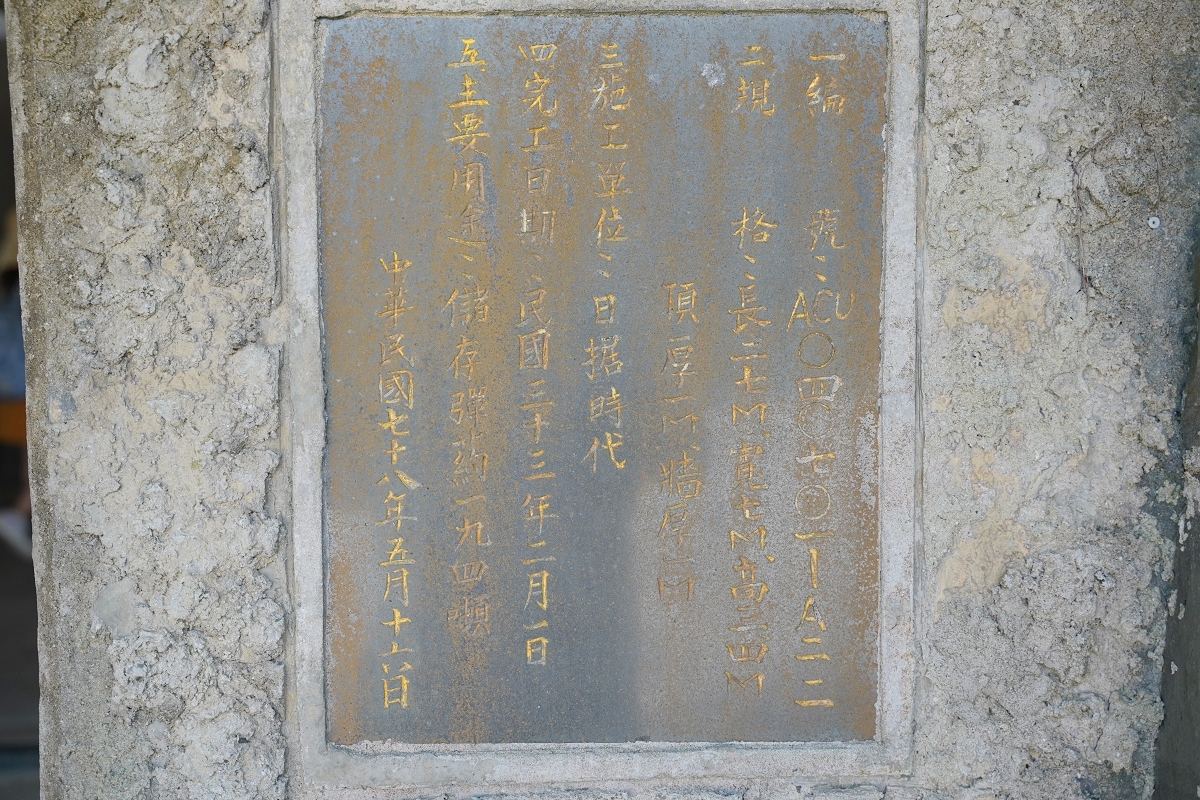 一編號:ACU〇四〇七〇一—A二二
二規格:長二七M、寬七M、高四M
頂厚一M、牆厚二M
三施工單位:日据時代
四完工日期:民國三十三年二月一日
五、主要用途:儲存彈葯一九四噸
中華民國七十八年五月十六日